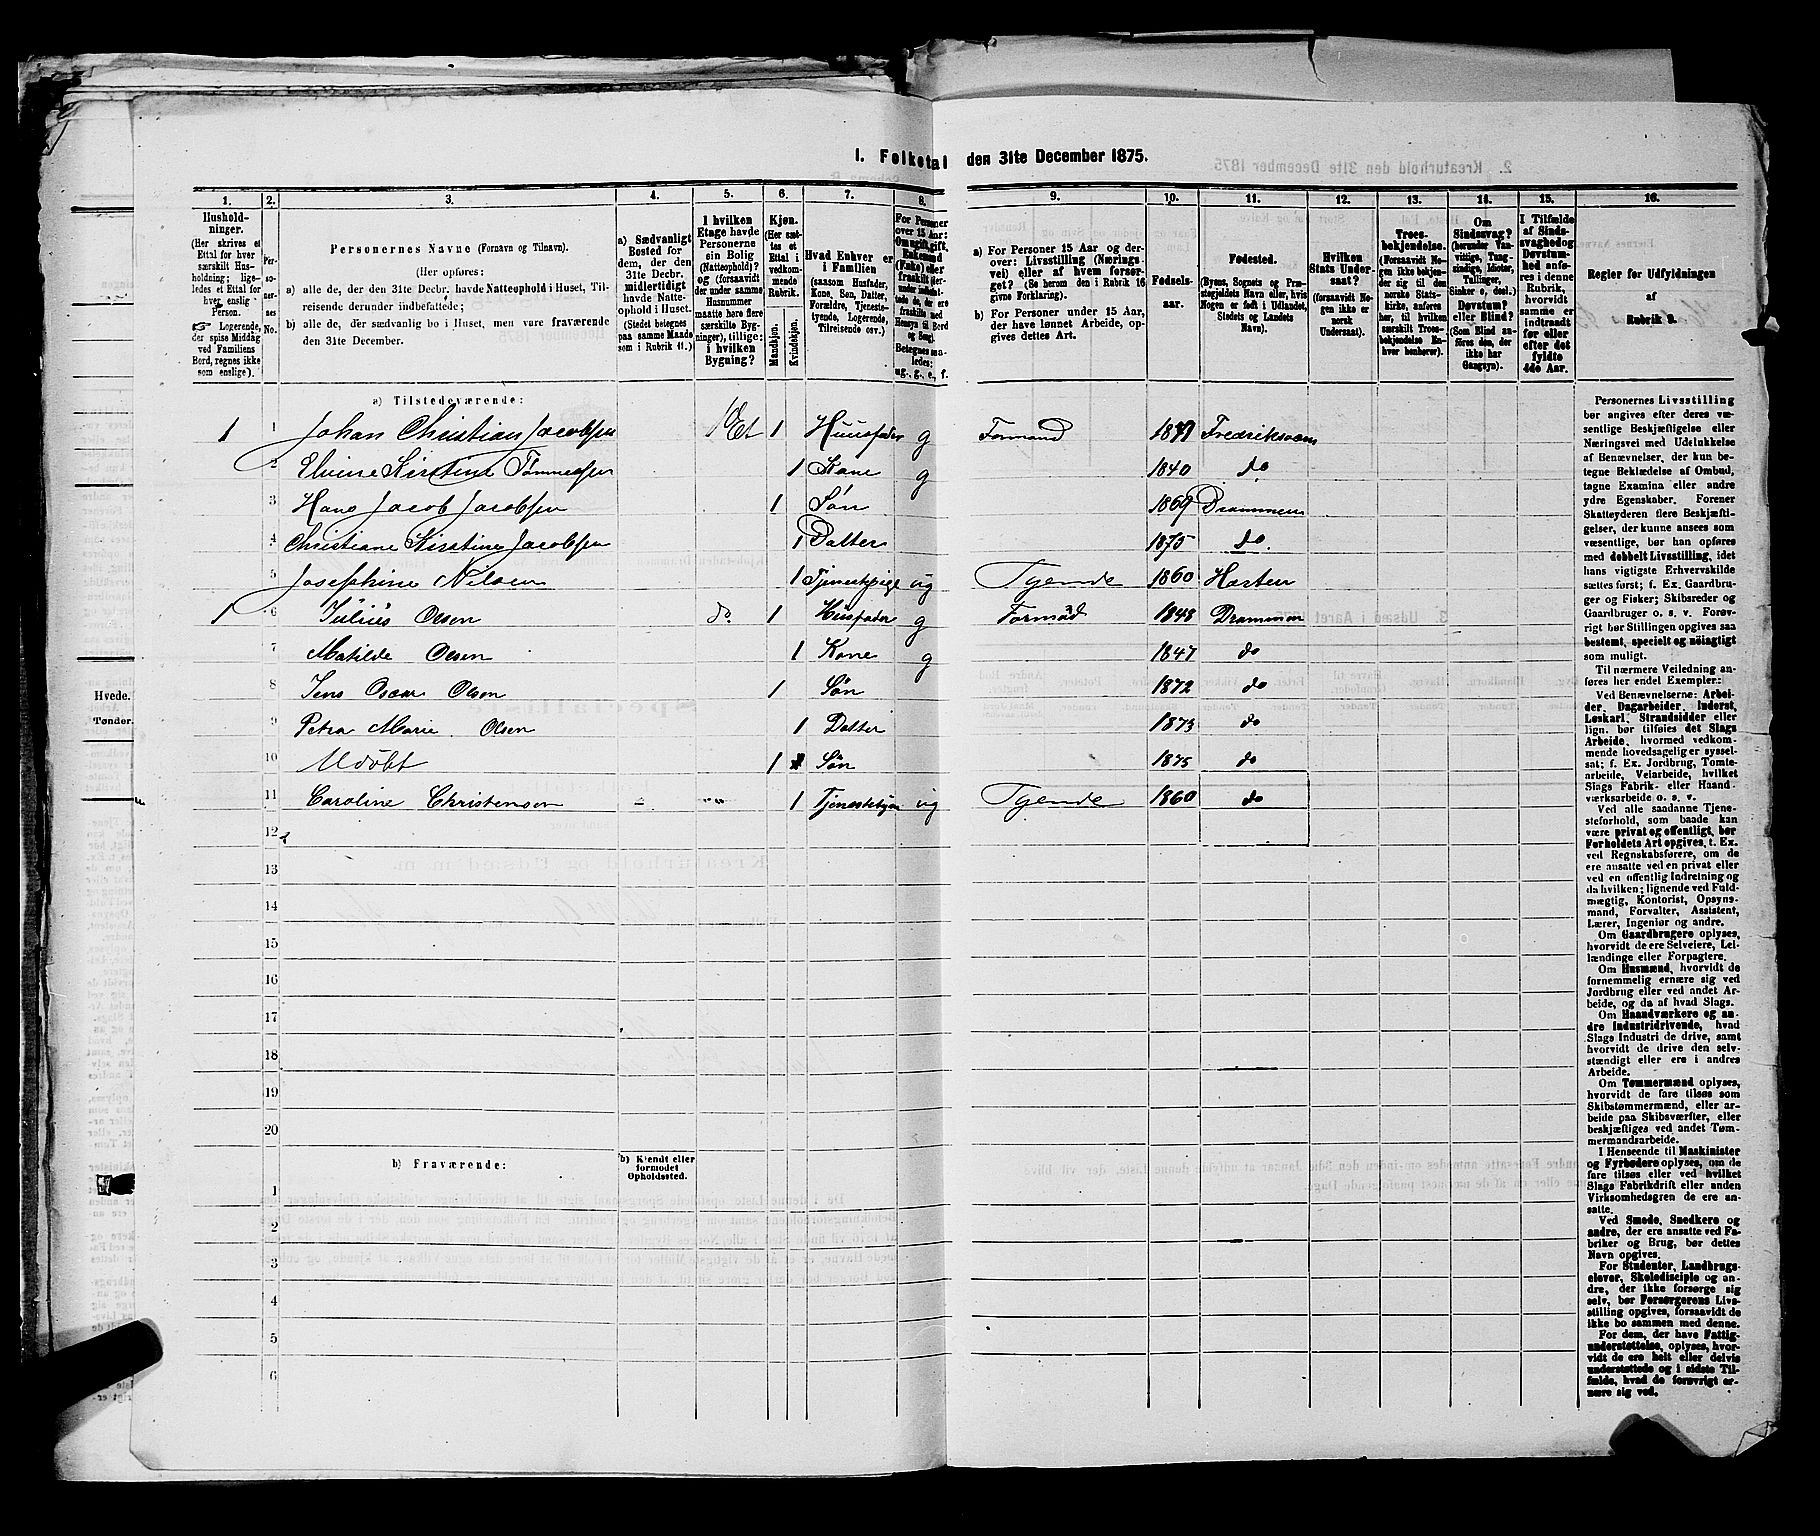 I. Folketal den 31te December 1875.
1. 2. 3. 4. 5. 6. 7. 8. 9. 10. 11. 12. 13. 14. 15. 16.
Hushold-
ninger.
(Her skrives et
Ettal for hver
særskilt Hus-
holdning; lige-
ledes et Ettal for
hver enslig
Person.
☞ Logerende,
der spise Middag
ved Familiens
Bord, regnes ikke
som enslige).
Per-
so-
ner-
nes
No.
Personernes Navne (Fornavn og Tilnavn).
(Her opføres:
a) alle de, der den 31te Decbr. havde Natteophold i Huset, Til-
reisende derunder indbefattede;
b) alle de, der sædvanlig bo i Huset, men vare fraværende
den 31te December.
a) Sædvanligt
Bosted for
dem, der den
31te Decbr.
midlertidigt
havde Natte-
ophold i Huset.
(Stedet betegnes
paa samme Maade
som i Rubrik 11.)
I hvilken
Etage havde
Personerne
sin Bolig
(Natteophold)?
og (forsaavidt
der under samme
Husnummer
maatte høre flere
særskilte Byg-
ninger), tillige:
i hvilken
Bygning?
Kjøn.
(Her sæt-
tes et
Ettal i
vedkom-
mende
Rubrik.
Mandkjøn.
Kvindekjøn.
Hvad Enhver er
i Familien
(saasom Husfader,
Kone, Søn, Datter,
Forældre, Tjeneste-
tyende, Logerende,
Tilreisende osv.)
For Personer
over 15 Aar:
Om ugift, gift,
Enkemand
(Enke) eller
fraskilt
a) For Personer 15 Aar og der-
over: Livsstilling (Nærings-
vei) eller af hvem forsør-
get? (Se herom den i Rubrik 16
givne Forklaring).
b) For Personer under 15 Aar,
der have lønnet Arbeide, op-
gives dettes Art.
Fødsels-
aar.
Fødested.
(Byens, Sognets og Præ-
stegjeldets Navn eller, hvis
Nogen er født i Udlandet,
Stedets og Landets
Navn).
Hvilken
Stats Under-
saat?
(forsaavidt No-
gen ikke er
norsk
Undersaat).
Troes-
bekjendelse.
(Forsaavidt No-
gen ikke bekjen-
der sig til den
norske Stats-
kirke, anføres
her, til hvilken
særskilt Troes-
bekjendelse En-
hver henhører).
Om
Sindssvag?
(herunder Van-
vittige, Tung-
sindige, Idioter,
Tullinger,
Sinker o. desl.)
Døvstum?
eller Blind?
(Som Blind an-
føres den, der
ikke har
Gangsyn).
I Tilfælde
af Sinds-
svaghed og
Døvstum-
hed anføres
i denne
Rubrik,
hvorvidt
samme er
indtraadt
før eller
efter det
fyldte
4de Aar.
Regler for Udfyldningen
af
Rubrik 9.
a) Tilstedeværende:
1 1 Johan Christian Jacobsen 1 Et 1 Huusfader g Formand Fredriksværn
2 Elvine Kirstine Tønnessen 1 Kone g 1840 do
3 Hans Jacob Jacobsen 1 Søn 1869 Drammen
4 Christiane Kirstine Jacobsen 1 Datter 1875 do.
5 Josephine Nilsen 1 Tjenestpige ug Tyende 1860 Hurten
1 6 Julius Olsen do. 1 Husfader g 1843 Drammen
7 Matilde Olsen 1 Kone g 1847 do
8 Jens Oscar Olsen 1 Søn 1872 do
9 Petra Marie Olsen 1 Datter 1873 do
10 Udøbt 1 Søn 1875 do
11 Caroline Christensen 1 ug Tyende 1860 do
12
13
14
15
16
17
18
19
20
b) Fraværende:
b) Kjendt eller
formodet
Opholdssted.
1
2
3
4
5
6
Personernes Livsstilling
bør angives efter deres væ-
sentlige Beskjæftigelse eller
Næringsvei med Udelukkelse
af Benævnelser, der kun be-
tegne Beklædelse af Ombud,
tagne Examina eller andre
ydre Egenskaber. Forener
Skatteyderen flere Beskjæfti-
gelser, der kunne ansees som
væsentlige, bør han opføres
med dobbelt Livsstilling, idet
hans vigtigste Erhvervskilde
sættes først; f. Ex. Gaardbru-
ger og Fisker; Skibsreder og
Gaardbruger o. s. v. Forøv-
rigt bør Stillingen opgives saa
bestemt, specielt og nøiagtigt
som muligt.
Til nærmere Veiledning an-
føres her endel Exempler:
Ved Benævnelserne: Arbei-
der, Dagarbeider, Inderst,
Løskarl, Strandsidder eller
lign. bør tilføies det Slags
Arbeide, hvormed vedkom-
mende hovedsagelig er syssel-
sat; f. Ex. Jordbrug, Tomte-
arbeide, Veiarbeide, hvilket
Slags Fabrik- eller Haand-
værksarbeide o. s. v.
Ved alle saadanne Tjene-
steforhold, som baade kan
være privat og offentligt, bør
Forholdets Art opgives, t. Ex.
ved Regnskabsførere, om de
ere ansatte ved en privat eller
ved en offentlig Indretning og
da hvilken; lignende ved Fuld-
mægtig, Kontorist, Opsyns-
mand, Forvalter, Assistent,
Lærer, Ingeniør og andre.
Om Gaardbrugere oplyses,
hvorvidt de ere Selveiere, Lei-
lændinge eller Forpagtere.
Om Husmænd, hvorvidt de
fornemmelig ernære sig ved
Jordbrug eller ved andet Ar-
beide, og da af hvad Slags.
Om Haandværkere og an-
dre Industridrivende, hvad
Slags Industri de drive, samt
hvorvidt de drive den selv-
stændigt eller ere i andres
Arbeide.
Om Tømmermænd oplyses,
hvorvidt de fare tilsøs som
Skibstømmermænd, eller ar-
beide paa Skibsværfter, eller
beskjæftiges ved andet Tøm-
mermandsarbeide.
I Henseende til Maskinister
og Fyrbødere oplyses, om de
fare tilsøs eller ved hvilket
Slags Fabrikdrift eller anden
Virksomhedsgren de ere an-
satte.
Ved Smede, Snedkere og
andre, der ere ansatte ved Fa-
briker og Brug, bør dettes
Navn opgives.
For Studenter, Landbrugs-
elever, Skoledisciple og an-
dre, der ikke forsørge sig
selv, bør Forsørgerens Livs-
stilling opgives, forsaavidt de
ikke bo sammen med denne.
For dem, der have Fattig-
understøttelse, oplyses, hvor-
vidt de ere helt eller delvis
understøttede og i sidste Til-
fælde, hvad de forøvrigt er-
nære sig ved.
Hvede.
Tønder.